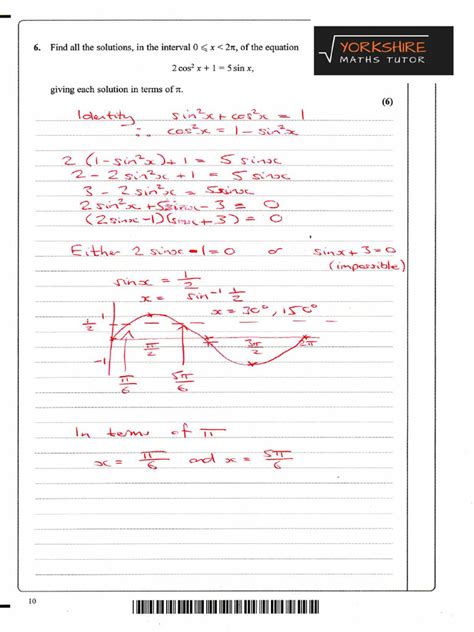 YORKSHIRE
MATHS TUTOR
6. Find all the solutions, in the interval 0 ⩽ x < 2π, of the equation
2 cos² x + 1 = 5 sin x,
giving each solution in terms of π.
(6)
Identity sin²x + cos²x = 1
∴ cos²x = 1 - sin²x
2 (1-sin²x)+1 = 5 sinx
2 - 2 sin²x + 1 = 5 sinx
3 - 2 sin²x = 5sinx
2 sin²x + 5sinx - 3 = 0
(2sinx-1)(sinx+3) = 0
Either 2 sinx - 1 = 0 or sinx + 3 = 0
(impossible)
sinx = 1/2
x = sin⁻¹ 1/2
x = 30°, 150°
1
1/2
-1
π/2 3π/2 2π
π/6 5π/6
In terms of π
x = π/6 and x = 5π/6
10